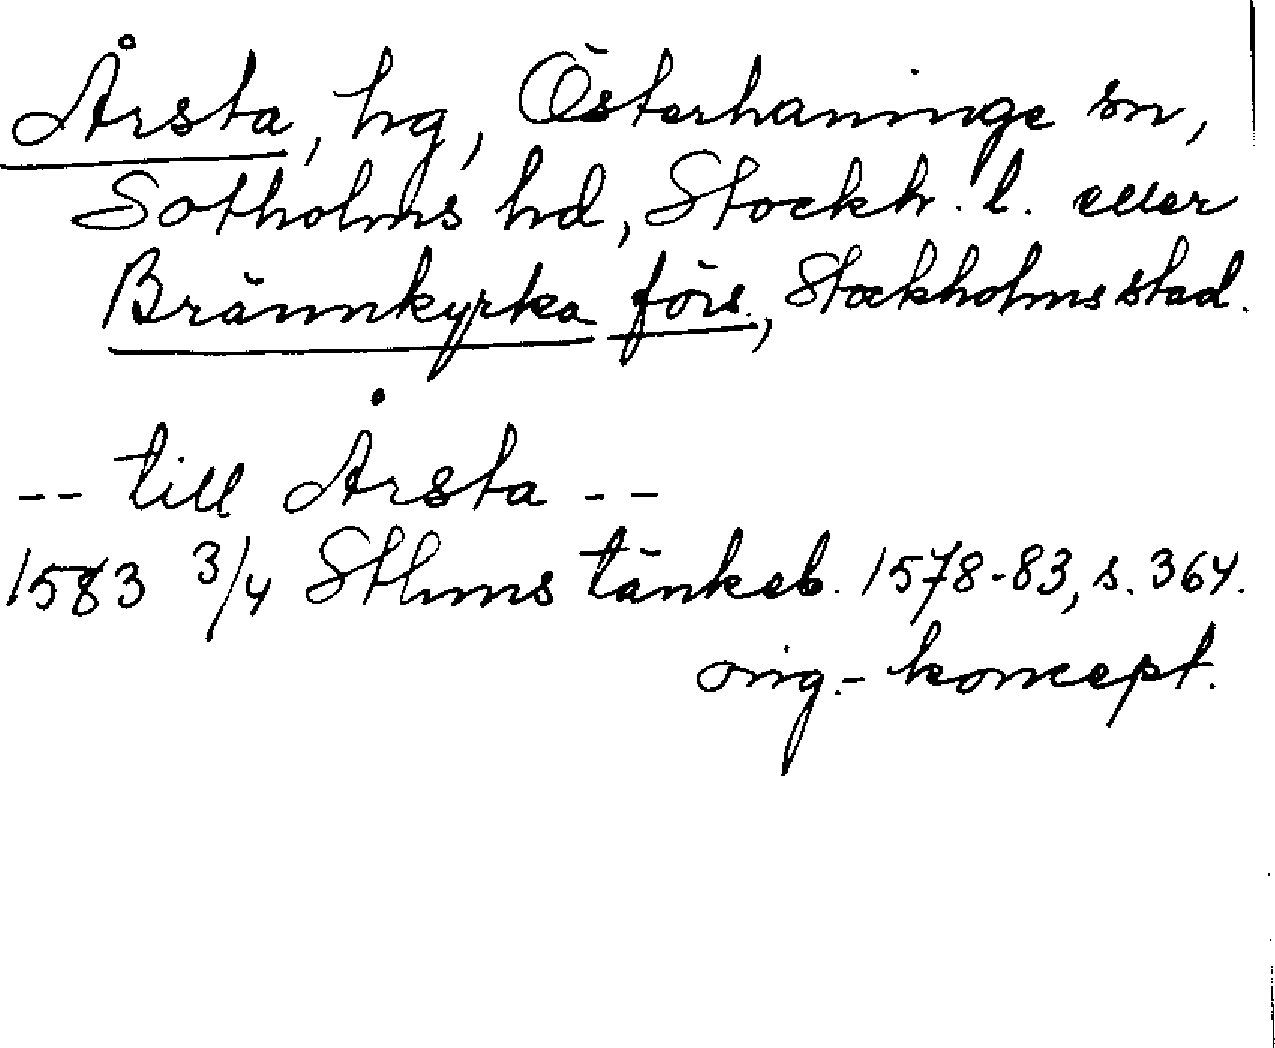 Årsta, hg, Österhaninge sn,
Sotholms hd, Stockh. l. eller
Brännkyrka förs., Stockholms stad.
-- till Årsta --
1583 3/4 Sthms tänkeb. 1578-83, s. 364.
orig.- koncept.